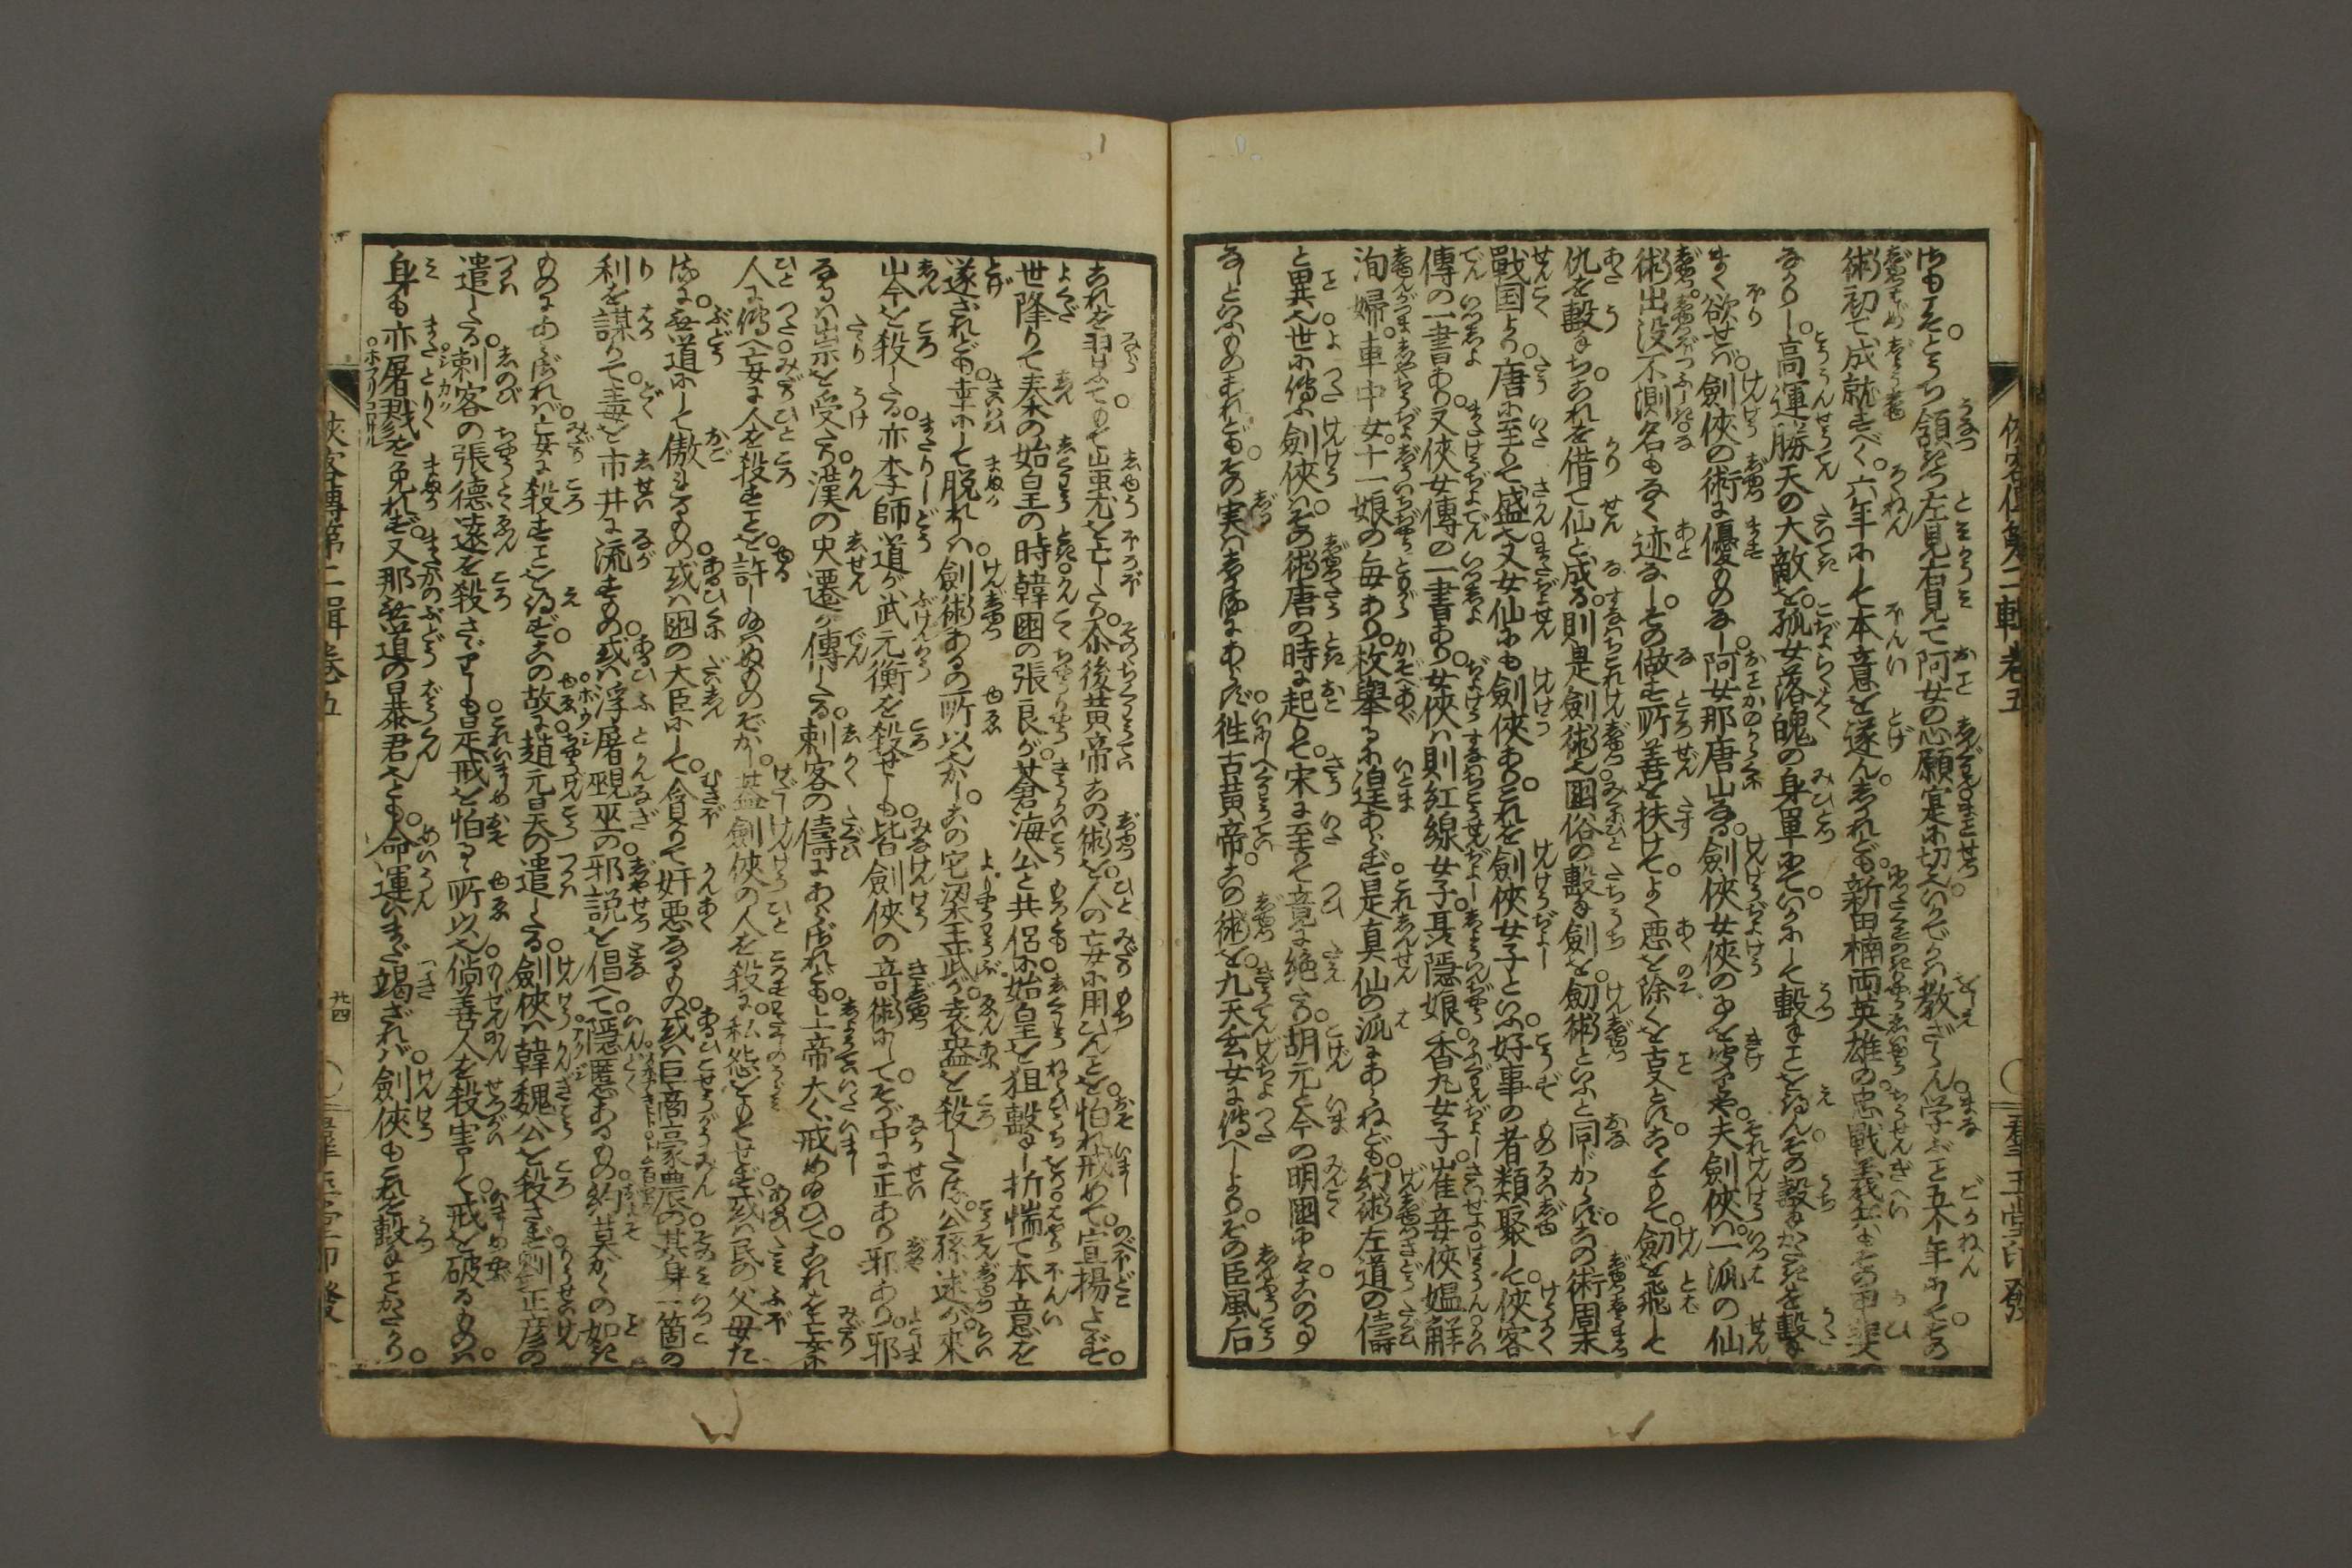 俠客傳第二輯卷五
頷きつ左見右見て阿女の志願寔に切なり。いかでかは教ざらん。学ぶこと五六年にしてその
術初て成就すべく。六年にして本意を遂ん。しかれども新田楠両英雄の忠戦義
なかりし。高運勝天の大敵を。孤女落魄の身單にて。いかにして撃ことを得ん。その撃がたきを撃
まく欲せば。劍俠の術に優ものなし。阿女那唐山なる。劍俠女俠の事を聞ずや。夫劍俠は。一派の仙
術。出没不測名もなく迹なし。その做す所善を扶けて。よく悪を除くを旨とす。もて劔を飛して
仇を撃。これを借て仙と成る。則是劍術也。囶俗の撃劍を。劔術といふと同じからず。この術周末
戦国より。唐に至りて盛也。又女仙にも劍俠あり。これを劍俠女子といふ。好事の者類聚して。俠客
傳の一書あり。又俠女傳の一書あり。女俠は則紅線女子。聶隱娘。香丸女子。崔妾。俠媼。解
洵婦。車中女。十一娘の毎あり。枚擧るに遑あらず。是真仙の派にあらねども。幻術左道の儔
と異也。世に傳ふ劍俠は。その術唐の時に起りて。宋に至りて竟に絶たり。胡元と今の明囶には。この事
なしといふものあれども。その実はしかるにあらず。徃古黄帝。この術を。九天玄女に傳へしより。その臣風后
これを習ふて。もて蚩尤を亡したり。尓後黄帝この術を。人の妄に用ひんことを。怕れ戒めて。宣揚さず。
世降りて秦の始皇の時。韓囶の張良が。蒼海公と共侶に。始皇を狙撃し。折惴て本意を
遂ざれども。幸にして脱れしは。劍術あるの所以ぞかし。この它梁王武が。袁盎を殺したる。公孫述が。來
歙岑彭を殺したる。亦李師道が武元衡を殺せしも。皆劍俠の竒術にして。そが中に正あり邪あり。邪
なるは祟を受たり。漢の史遷が傳したる。刺客の儔にあらざれども。上帝太く戒め給ひて。これを妄に
人に傳へ。妄に人を殺すことを。許し給はぬものぞかし。蓋劍俠の人を殺に。私怨をもてせず。或は民の父母た
るに。無道にして傲れるもの。或は囶の大臣にして。貪りて奸悪なるもの。或は巨商豪農の。其身一箇の
利を謀りて。毒を市井に流すもの。或は浮屠覡巫の。邪説を倡へて。隱慝あるもの。約莫かくの如き
ものにあらざれば。妄に殺すことを得ず。この故に趙元昊の遣したる。劍俠は韓魏公を殺さず。劉正彦の
遣したる。刺客の張德遠を殺さざりしも。是戒を怕るゝ所以也。倘善人を殺害して。戒を破るものは。
身も亦屠戮を免れず。又那無道の暴君也とも。命運いまだ竭ざれば。劍俠もこれを撃ことかなはず。
俠客傳第二輯卷五
廿四
群玉堂印發